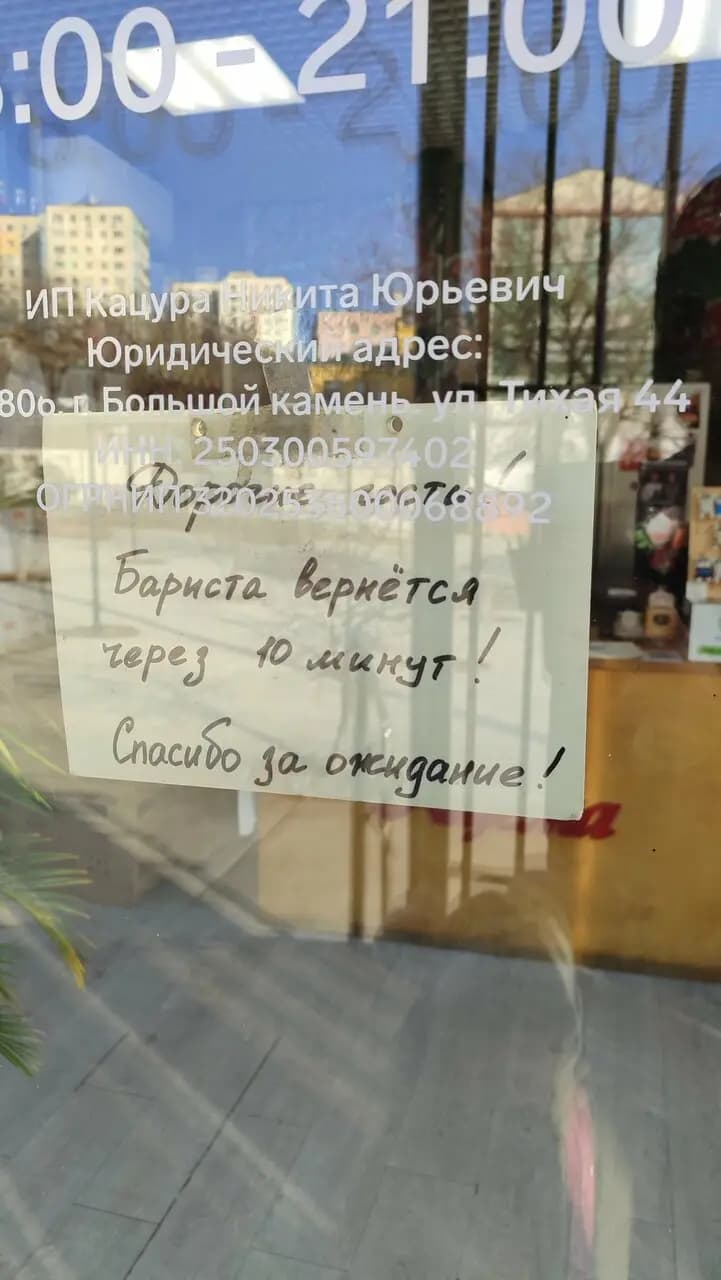 :00 - 21:00
ИП Кацура Никита Юрьевич
Юридический адрес:
г. Большой камень, ул. Тихая 44
ИНН: 250300597402
ОГРНИП
Дорогие гости!
Бариста вернётся
через 10 минут!
Спасибо за ожидание!